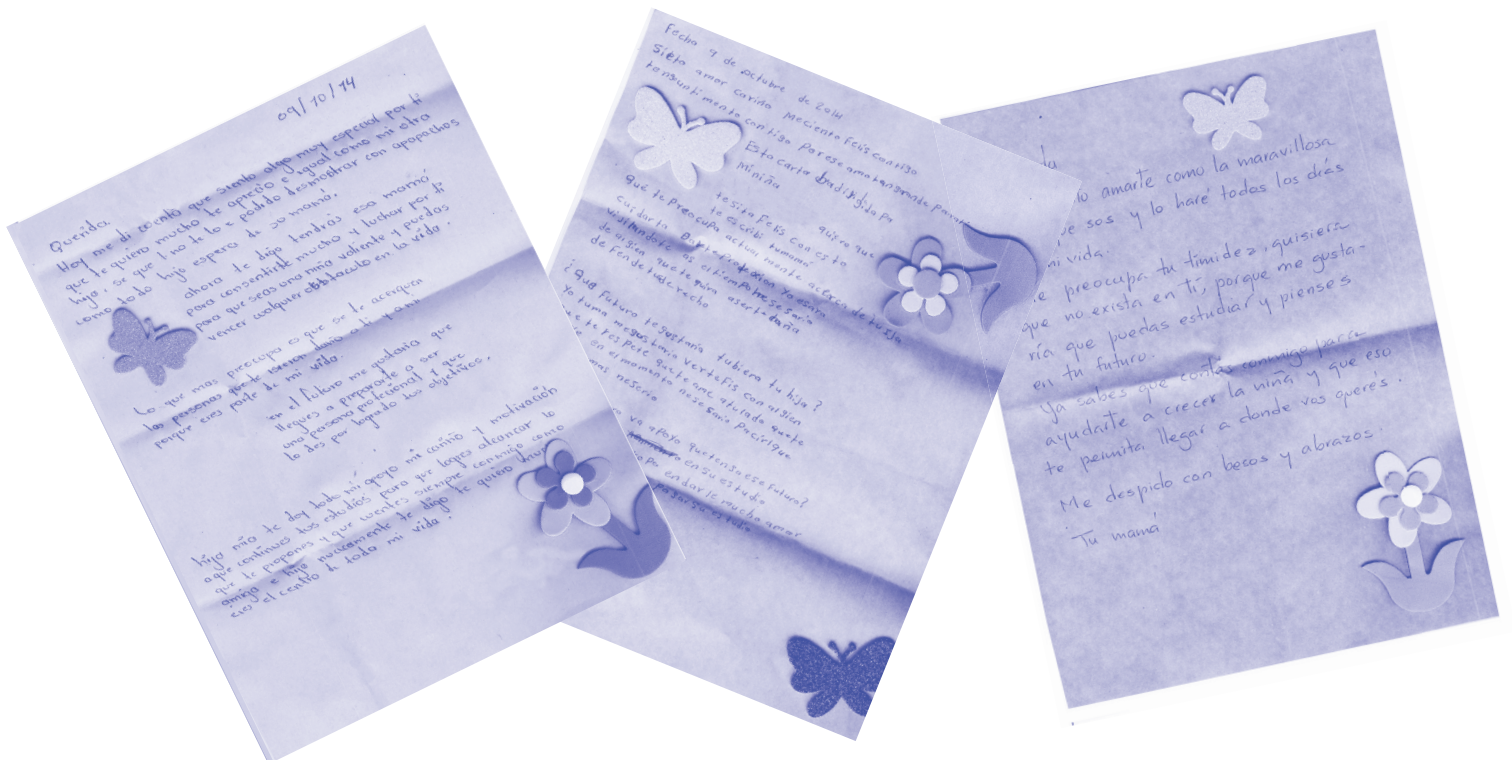 09/10/14
Querida.
Hoy me di cuenta que siento algo muy especial por ti
que te quiero mucho te aprecio e igual como mi otra
hija, se que no te lo e podido desmostrar con apapachos
como todo hijo espera de su mamá.
ahora te digo tendrás esa mamá
para consentirte mucho y luchar por ti
para que seas una niña valiente y puedas
vencer cualquier obstaculo en la vida.
Lo que mas preocupa es que se le acerquen
las personas que te daño a ti y a mi
porque eres parte de mi vida.
en el futuro me gustaria que
llegues a prepararte a ser
una persona profecional y que
lo des por logrado tus objetivos.
hija mia te doy todo mi apoyo mi cariño y motivación
a que continues tus estudios para que logres alcanzar lo
que te propones y que cuentes siempre conmigo como
amiga e hija nuevamente te digo te quiero mucho
eres el centro de toda mi vida.
Fecha 9 de octubre de 2014
Siento amor cariño Meciento Felis contigo
tensuntimento contigo Porese amortangrande parati
Esta carta badirigida
miniña
quiero que
tesita Felis con esta
te escribi tumamá
Qué te preocupa actual mente acerca de tu hija
cuidarla
vigilandote as el tiempo nesesario
de algien que te quiera aser daño
defende tuderecho
¿Qué Futuro te gustaria tubiera tu hija?
Yo tuma megustaria vertefis con algien
que te respete que te ame aturado quete
en el momento nesesario Pacirlque
mas nesesa
va apoyo quetenga ese futuro?
en su estudio
Po endarle mucho amor
pagar su estudio
la
lo amarte como la maravillosa
que sos y lo haré todos los días
mi vida.
me preocupa tu timidez, quisiera
que no exista en ti, porque me gusta-
ría que puedas estudiar y pienses
en tu futuro.
Ya sabes que contás conmigo para
ayudarte a crecer la niña y que eso
te permita llegar a donde vos querés.
Me despido con becos y abrazos.
Tu mamá